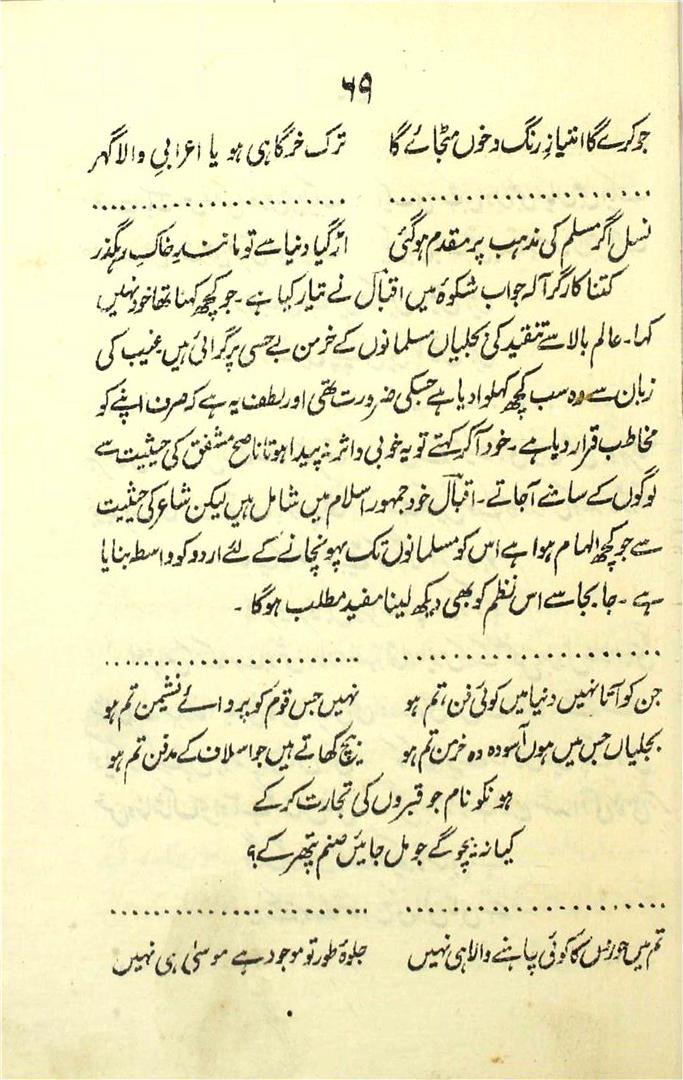 ۶۹
جو کرے گا امتیازِ رنگ و خوں مٹ جائے گا ترک خرگاہی ہو یا اعرابیِ والا گہر
..............................
نسل اگر مسلم کی مذہب پر مقدم ہوگئی اڑ گیا دنیا سے تو مانندِ خاکِ رہگذر
کتنا کارگر آلہ جواب شکوہ میں اقبالؔ نے تیار کیا ہے۔ جو کچھ کہنا تھا خود نہیں
کہا۔ عالم بالا سے تنقید کی بجلیاں مسلمانوں کے خرمن بے حسی پر گرائی ہیں۔ غیب کی
زبان سے وہ سب کچھ کہلوا دیا ہے جسکی ضرورت تھی اور لطف یہ ہے کہ صرف اپنے کو
مخاطب قرار دیا ہے۔ خود آکر کہتے تو یہ خوبی و اثر نہ پیدا ہوتا ناصح مشفق کی حیثیت سے
لوگوں کے سامنے آجاتے۔ اقبالؔ خود جمہور اسلام میں شامل ہیں لیکن شاعر کی حیثیت
سے جو کچھ الہام ہوا ہے اس کو مسلمانوں تک پہونچانے کے لئے اردو کو واسطہ بنایا
ہے۔ جا بجا سے اس نظم کو بھی دیکھ لینا مفید مطلب ہوگا۔
..............................
جن کو آتا نہیں دنیا میں کوئی فن، تم ہو نہیں جس قوم کو پروائے نشیمن تم ہو
بجلیاں جس میں ہوں آسودہ وہ خرمن تم ہو بیچ کھاتے ہیں جو اسلاف کے مدفن تم ہو
ہو نکو نام جو قبروں کی تجارت کر کے
کیا نہ بیچو گے جو مل جائیں صنم پتھر کے؟
..............................
تم میں حوروں کا کوئی چاہنے والا ہی نہیں جلوۂ طور تو موجود ہے موسیٰ ہی نہیں